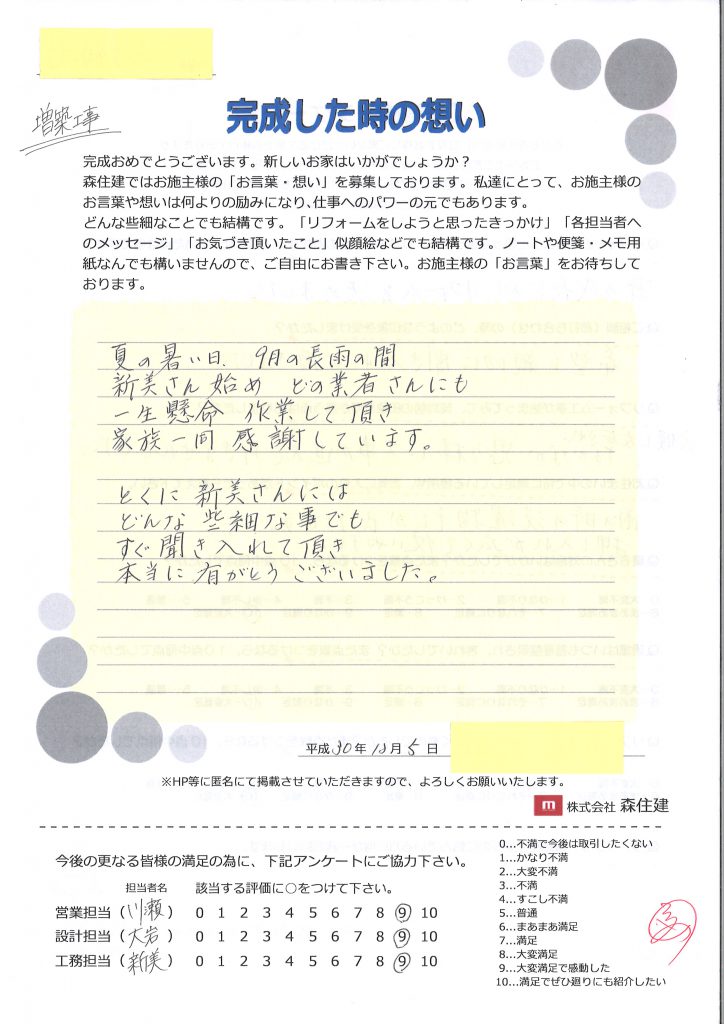 増築工事
完成した時の想い
完成おめでとうございます。新しいお家はいかがでしょうか？
森住建ではお施主様の「お言葉・想い」を募集しております。私達にとって、お施主様の
お言葉や想いは何よりの励みになり、仕事へのパワーの元でもあります。
どんな些細なことでも結構です。「リフォームをしようと思ったきっかけ」「各担当者へ
のメッセージ」「お気づき頂いたこと」似顔絵などでも結構です。ノートや便箋・メモ用
紙なんでも構いませんので、ご自由にお書き下さい。お施主様の「お言葉」をお待ちして
おります。
夏の暑い日、9月の長雨の間
新美さん始め どの業者さんにも
一生懸命 作業して頂き
家族一同 感謝しています。
とくに新美さんには
どんな些細な事でも
すぐ聞き入れて頂き
本当に有がとうございました。
平成30年12月5日
※HP等に匿名にて掲載させていただきますので、よろしくお願いいたします。
m 株式会社 森住建
今後の更なる皆様の満足の為に、下記アンケートにご協力下さい。
担当者名 該当する評価に○をつけて下さい。
営業担当（川瀬） 0 1 2 3 4 5 6 7 8 9 10
設計担当（大岩） 0 1 2 3 4 5 6 7 8 9 10
工務担当（新美） 0 1 2 3 4 5 6 7 8 9 10
0…不満で今後は取引したくない
1…かなり不満
2…大変不満
3…不満
4…すこし不満
5…普通
6…まあまあ満足
7…満足
8…大変満足
9…大変満足で感動した
10…満足でぜひ廻りにも紹介したい